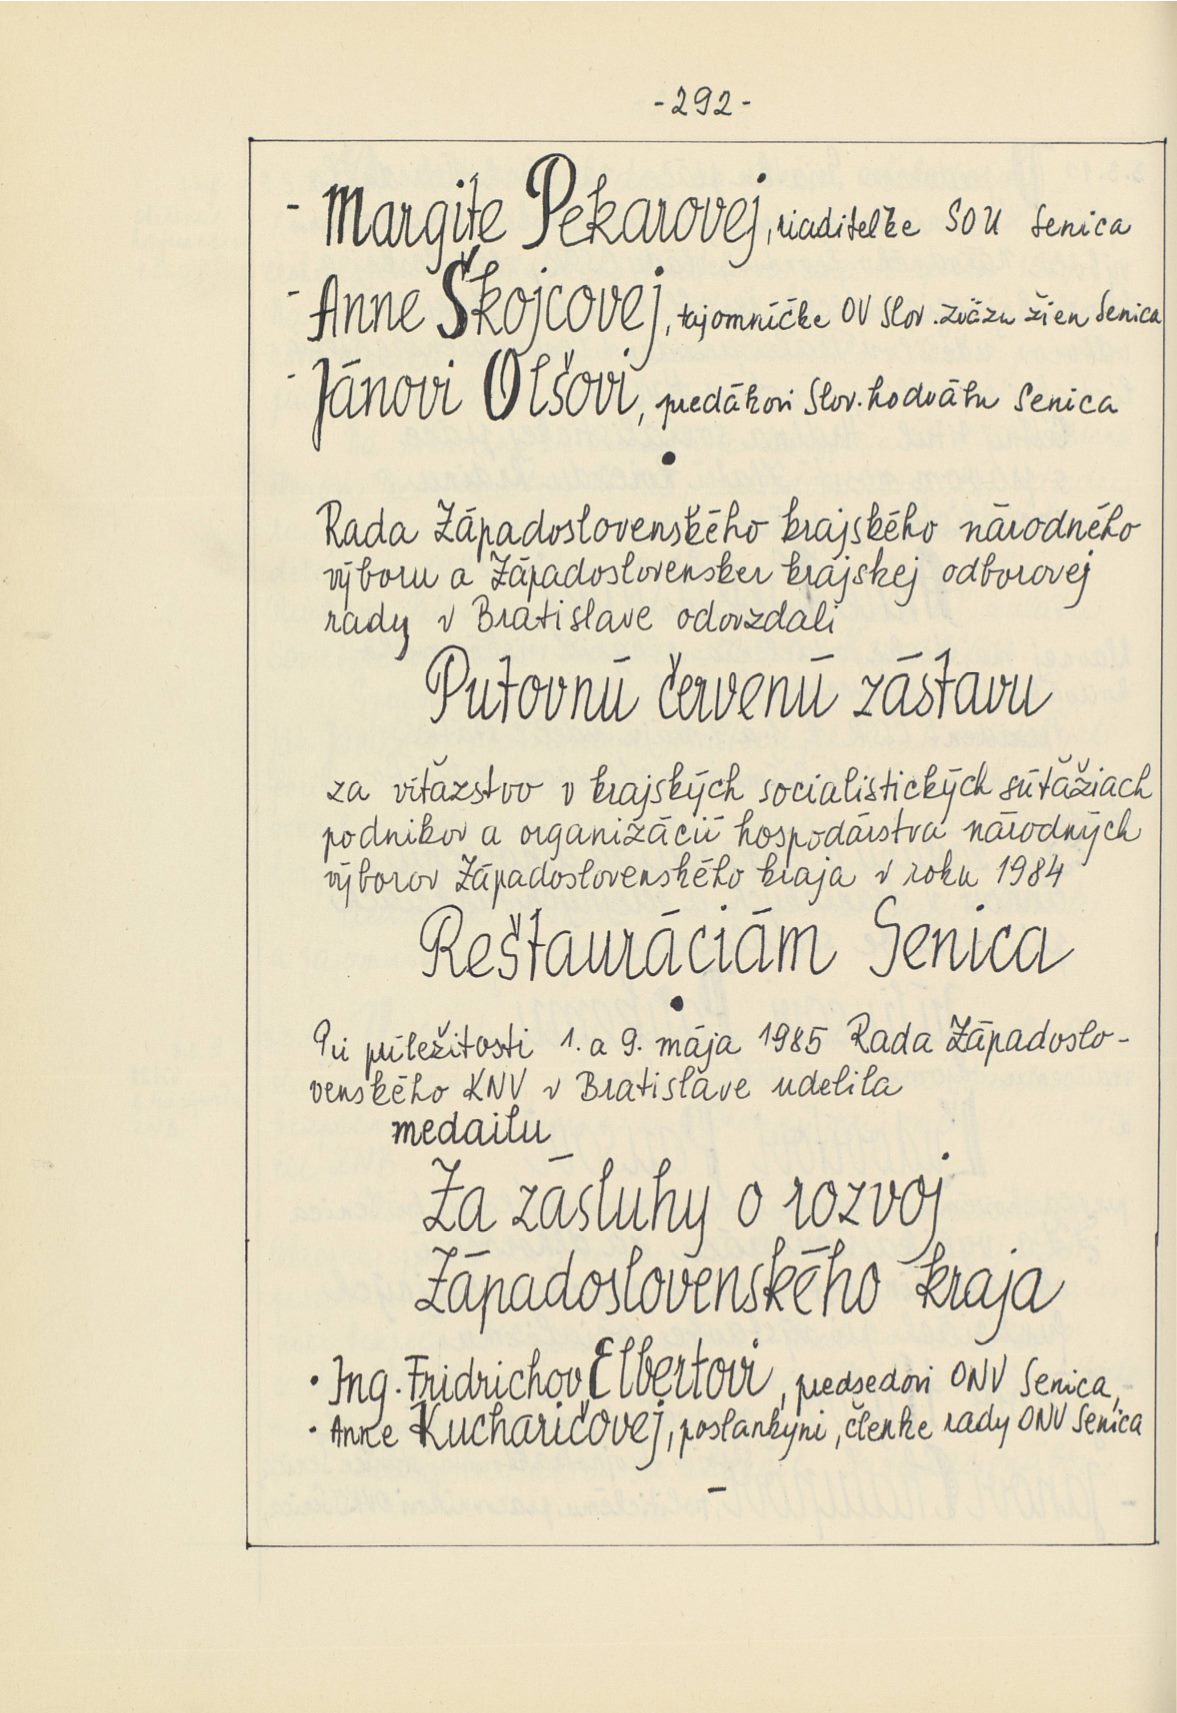 -292-
- Margite Pekarovej, riaditeľke SOU Senica
- Anne Škojcovej, tajomníčke OV Slov. zväzu žien Senica
- Jánovi Olšovi, predákovi Slov. hodvábu Senica
Rada Západoslovenského krajského národného
výboru a Západoslovensker krajskej odborovej
rady v Bratislave odovzdali
Putovnú červenú zástavu
za víťazstvo v krajských socialistických súťažiach
podnikov a organizácií hospodárstva národných
výborov Západoslovenského kraja v roku 1984
Reštauráciám Senica
Pri príležitosti 1. a 9. mája 1985 Rada Západoslo-
venského KNV v Bratislave udelila
medailu
Za zásluhy o rozvoj
Západoslovenského kraja
• Ing. Fridrichov Elbertovi, predsedovi ONV Senica,
• Anne Kucharičovej, poslankyni, členke rady ONV Senica